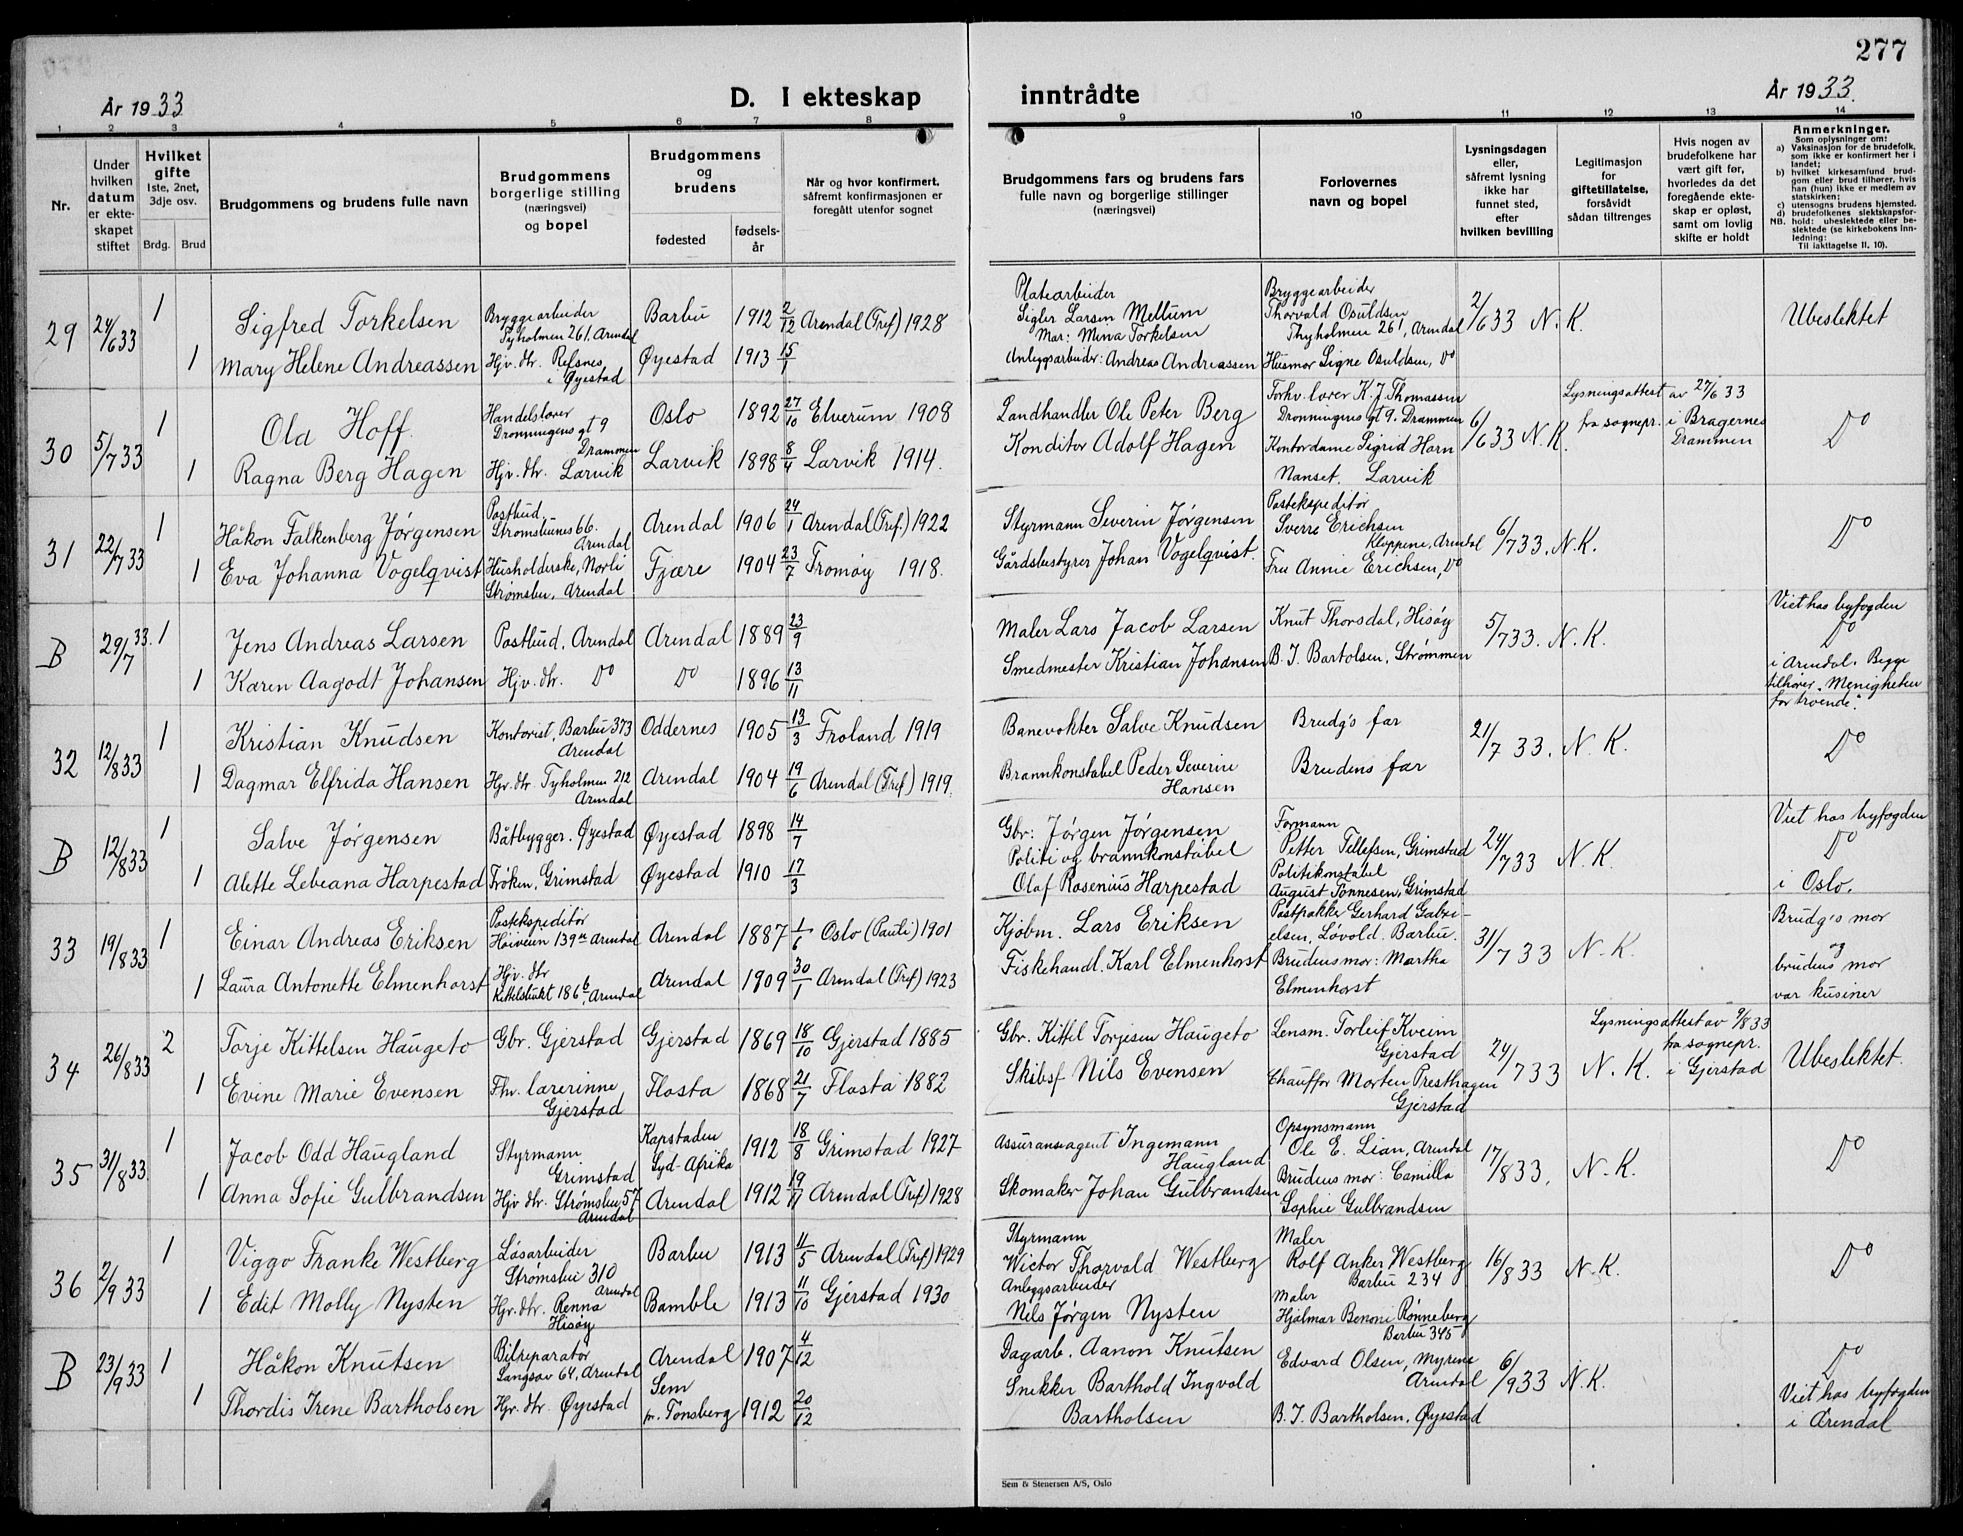 277
År 1933
D. I ekteskap inntrådte
År 1933.
1 2 3 4 5 6 7 8 9 10 11 12 13 14
Nr.
Under hvilken datum er ekteskapet stiftet
Hvilket gifte
1ste, 2net, 3dje osv.
Brdg. Brud
Brudgommens og brudens fulle navn
Brudgommens borgerlige stilling (næringsvei) og bopel
Brudgommens og brudens
fødested
fødselsår
Når og hvor konfirmert, såfremt konfirmasjonen er foregått utenfor sognet
Brudgommens fars og brudens fars fulle navn og borgerlige stillinger (næringsvei)
Forlovernes navn og bopel
Lysningsdagen eller, såfremt lysning ikke har funnet sted, efter hvilken bevilling
Legitimasjon for giftetillatelse, forsåvidt sådan tiltrenges
Hvis nogen av brudefolkene har vært gift før, hvorledes da det foregående ekteskap er opløst, samt om lovlig skifte er holdt
Anmerkninger.
Som oplysninger om:
a) Vaksinasjon for de brudefolk, som ikke er konfirmert her i landet;
b) hvilket kirkesamfund brudgom eller brud tilhører, hvis han (hun) ikke er medlem av statskirken;
c) utensogns brudens hjemsted.
d) brudefolkenes slektskapsforhold: ubeslektede eller beslektede (se kirkebokens innledning:
NB. Til iakttagelse II, 10).
29 24/6 33 1 Sigfred Torkelsen Bryggearbeider Tyholmen 261. Arendal Barbu 1912 2/12 Arendal (Tref) 1928 Platearbeider Sigler Larsen Mellum Mor: Mina Torkelsen Bryggearbeider Thorvald Osuldsen Thyholmen 261, Arendal 2/6 33 N.K. Ubeslektet
1 Mary Helene Andreassen Hjv. dtr. Refsnes i Øyestad Øyestad 1913 15/1 Anleggsarbeider: Andreas Andreassen Husmor Signe Osuldsen, Do
30 5/7 33 1 Ola Hoff. Handelslærer Dronningens gt 9 Drammen Oslo 1892 27/10 Elverum 1908 Landhandler Ole Peter Berg Forhv. lærer K. J. Thomassen Dronningens gt 9. Drammen 6/6 33 N.K. Lysningsattest av 27/6 33 fra sognepr. i Bragernes Drammen Do
1 Ragna Berg Hagen Hjv. dtr. Larvik Larvik 1898 8/4 Larvik 1914. Konditor Adolf Hagen Kontordame Sigrid Horn Nanset. Larvik
31 22/7 33 1 Håkon Falkenberg Jørgensen Postbud, Strømsbunes 66. Arendal Arendal 1906 24/1 Arendal (Tref.) 1922 Styrmann Severin Jørgensen Postekspeditør Sverre Erichsen Kleppene, Arendal 6/7 33. N.K. Do
1 Eva Johanna Vogelqvist Husholderske, Norli Strømsbu, Arendal Fjære 1904 23/7 Tromøy 1918. Gårdsbestyrer Johan Vogelqvist. Fru Annie Erichsen, Do
B 29/7 33. 1 Jens Andreas Larsen Postbud, Arendal Arendal 1889 23/9 Maler Lars Jacob Larsen Knut Thorsdal, Hisøy 5/7 33. N.K. Viet hos byfogden Do
1 Karen Aagodt Johansen Hjv. dtr. Do Do 1896 13/11 Smedmester Kristian Johansen B. I. Bartolsen, Strømmen i Arendal. Begge tilhører "Menigheten for troende".
32 12/8 33 1 Kristian Knudsen Kontorist, Barbu 373 Arendal Oddernes 1905 13/3 Froland 1919 Banevokter Salve Knudsen Brudg's far 21/7 33. N.K. Do
1 Dagmar Elfrida Hansen Hjv. dtr Tyholmen 212 Arendal Arendal 1904 19/6 Arendal (Tref) 1919. Brannkonstabel Peder Severin Hansen Brudens far
B 12/8 33 1 Salve Jørgensen Båtbygger. Øyestad Øyestad 1898 14/7 Gbr: Jørgen Jørgensen Formann Petter Tellefsen, Grimstad 24/7 33 N.K. Viet hos byfogden Do
1 Alette Lebeana Harpestad Frøken, Grimstad Øyestad 1910 17/3 Politi og brannkonstabel Olaf Rosenius Harpestad Politikonstabel August Tønnesen, Grimstad i Oslo.
33 19/8 33 1 Einar Andreas Eriksen Postekspeditør Høiveien 139 Arendal Arendal 1887 1/6 Oslo (Pauli) 1901 Kjøbm. Lars Eriksen Postpakker Gerhard Gabrielsen, Løvold. Barbu. 31/7 33 N.K. Brudg's mor og
1 Laura Antonette Elmenhorst Hjv. dtr Kittelsbukt 186 b, Arendal Arendal 1909 30/1 Arendal (Tref) 1923 Fiskehandl. Karl Elmenhorst Brudens mor: Martha Elmenhorst brudens mor var kusiner
34 26/8 33 2 Torje Kittelsen Haugeto Gbr. Gjerstad Gjerstad 1869 18/10 Gjerstad 1885 Gbr. Kittel Torjesen Haugeto Lensm. Torleif Kveim Gjerstad 24/7 33 N.K. Lysningsattest av 9/8 33 fra sognepr. i Gjerstad Ubeslektet.
1 Evine Marie Evensen Fhv. lærerinne Gjerstad Flosta 1868 21/7 Flosta 1882 Skibsf Nils Evensen Chauffør Morten Presthagen Gjerstad
35 31/8 33 1 Jacob Odd Haugland Styrmann Grimstad Kapstaden Syd-Afrika 1912 18/8 Grimstad 1927 Assuranseagent Ingemann Haugland Opsynsmann Ole E. Lian, Arendal 17/8 33. N.K. Do
1 Anna Sofie Gulbrandsen Hjv dtr. Strømsbu 57 Arendal Arendal 1912 19/11 Arendal (Tref) 1928 Skomaker Johan Gulbrandsen Brudens mor: Camilla Sophie Gulbrandsen
36 2/9 33 1 Viggo Franke Westberg Løsarbeider Strømsbu 310 Arendal Barbu 1913 11/5 Arendal (Tref) 1929 Styrmann Wictor Thorvald Westberg Maler Rolf Anker Westberg Barbu 234 16/8 33 N.K. Do
1 Edit Molly Nysten Hjv. dtr. Renna Hisøy Bamble 1913 11/10 Gjerstad 1930 Anleggsarbeider Nils Jørgen Nysten Maler Hjalmar Benoni Rønneberg Barbu 345
B 23/9 33 1 Håkon Knutsen Bilreparatør Langsæv 64, Arendal Arendal 1907 4/12 Dagarb. Aanon Knutsen Edvard Olsen, Myrene Arendal 6/9 33 N.K. Do
1 Thordis Irene Bartholsen Hjv. dtr. Øyestad Sem pr. Tønsberg 1912 20/12 Snekker Barthold Ingvald Bartholsen B. I. Bartholsen. Øyestad Viet hos byfogden i Arendal
Sem & Stenersen A/S, Oslo